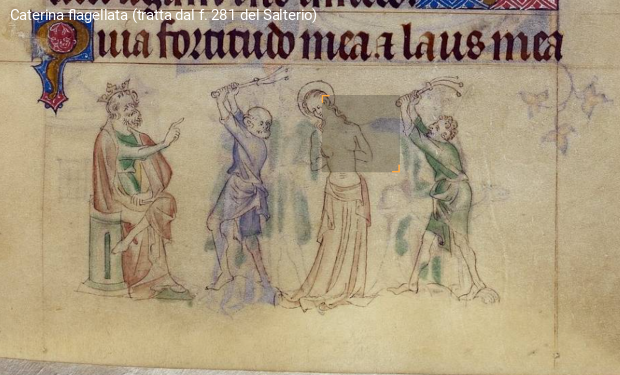 Caterina flagellata (tratta dal f. 281 del Salterio)
Quia fortitudo mea et laus mea